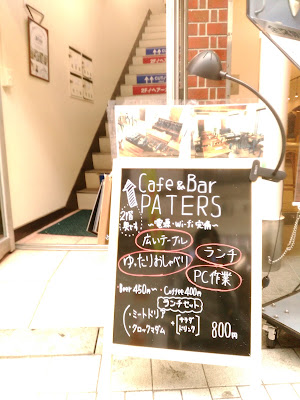 Cafe & Bar
PATERS
2階
奥です
〜電源・Wi-Fi完備〜
広いテーブル
ランチ
ゆったりおしゃべり
PC作業
Beer 450円〜 ・ Coffee 400円
ランチセット
・ミートドリア
・クロックマダム
+
サラダ
ドリンク
800円